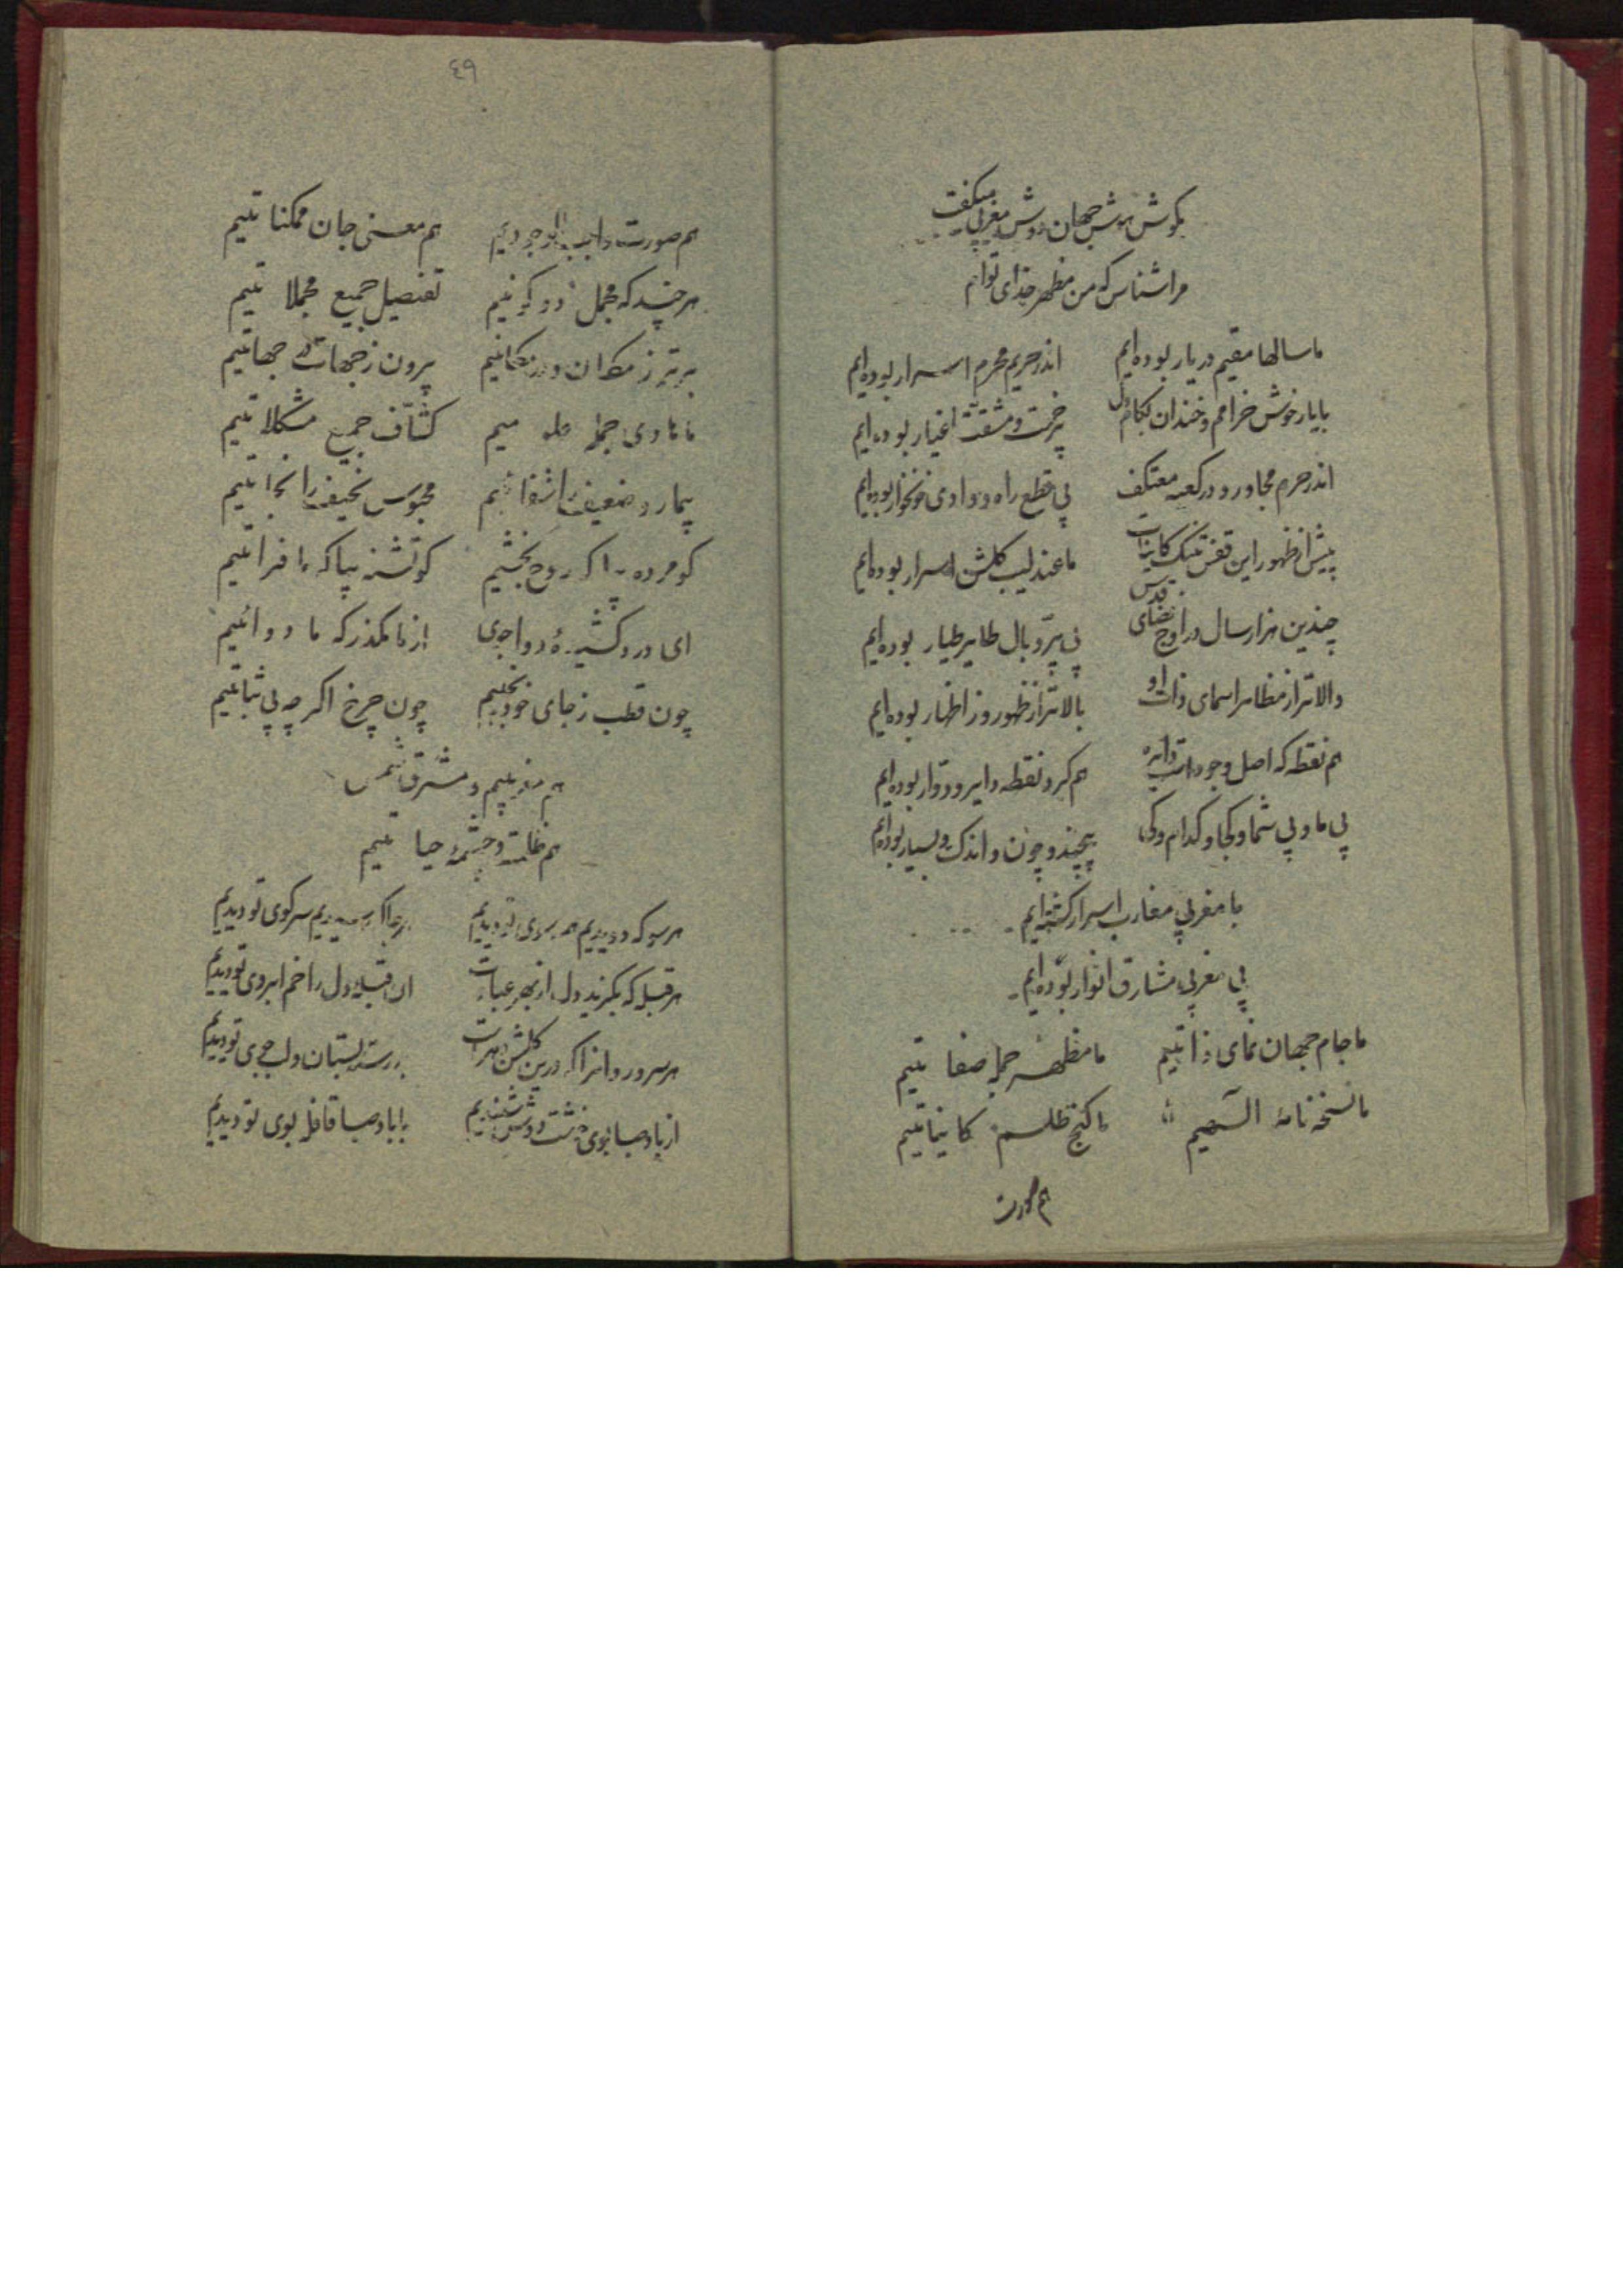 بکوش هوش جهان دوش مغربی میکفت
مرا شناس که من مظهر خدای توام
ما سالها مقیم در یار بوده‌ایم اندر حریم محرم اسرار بوده‌ایم
با یار خوش خرامم و خندان بکام دل بی زحمت و مشقت اغیار بوده‌ایم
اندر حرم مجاور و در کعبه معتکف بی قطع راه و وادی خونخوار بوده‌ایم
پیش از ظهور این قفس تنک کاینات ما عندلیب کلشن اسرار بوده‌ایم
چندین هزار سال در اوج فضای قدس بی پر و بال طایر طیار بوده‌ایم
والاتر از مظاهر اسمای ذات او بالاتر از ظهور وز اظهار بوده‌ایم
هم نقطه که اصل وجودات دایره هم کرد نقطه دایر و دوار بوده‌ایم
بی ما و بی شما و کجا و کدام و کی بیچند و چون و اندک و بسیار بوده‌ایم
با مغربی مغارب اسرار کشته‌ایم
بی مغربی مشارق انوار بوده‌ایم
ما جام جهان نمای ذاتیم ما مظهر جمله صفاتیم
ما نسخه نامهٔ الهیم ما کنج طلسم کایناتیم
هم صورت
٤٩
هم صورت واجب الوجودیم هم معنی جان ممکناتیم
هر چند که مجمل دو کونیم تفصیل جمیع مجملاتیم
برتر ز مکان و در مکانیم بیرون ز جهات و در جهاتیم
ما هادی جمله کشاف جمیع مشکلاتیم
بیمار و ضعیف را شفائیم محبوس نحیف را نجاتیم
کو مرده بیا که روح بخشیم کو تشنه بیا که ما فراتیم
ای درد کشیدهٔ دواجوی از ما مکذر که ما دوائیم
چون قطب ز جای خود نجنبیم چون چرخ اکر چه بی ثباتیم
هم مغربیم و مشرق شمس
هم ظلمت و چشمهٔ حیاتیم
هر سو که دویدیم همه سوی تو دیدیم هر جا که رسیدیم سر کوی تو دیدیم
هر قبله که بکزید دل از بهر عبادت آن قبلهٔ دل را خم ابروی تو دیدیم
هر سرو روانرا که درین کلشن دهر است بر رسته بستان و لب جوی تو دیدیم
از باد صبا بوی خوشت دوش شنیدیم با باد صبا قافلهٔ بوی تو دیدیم